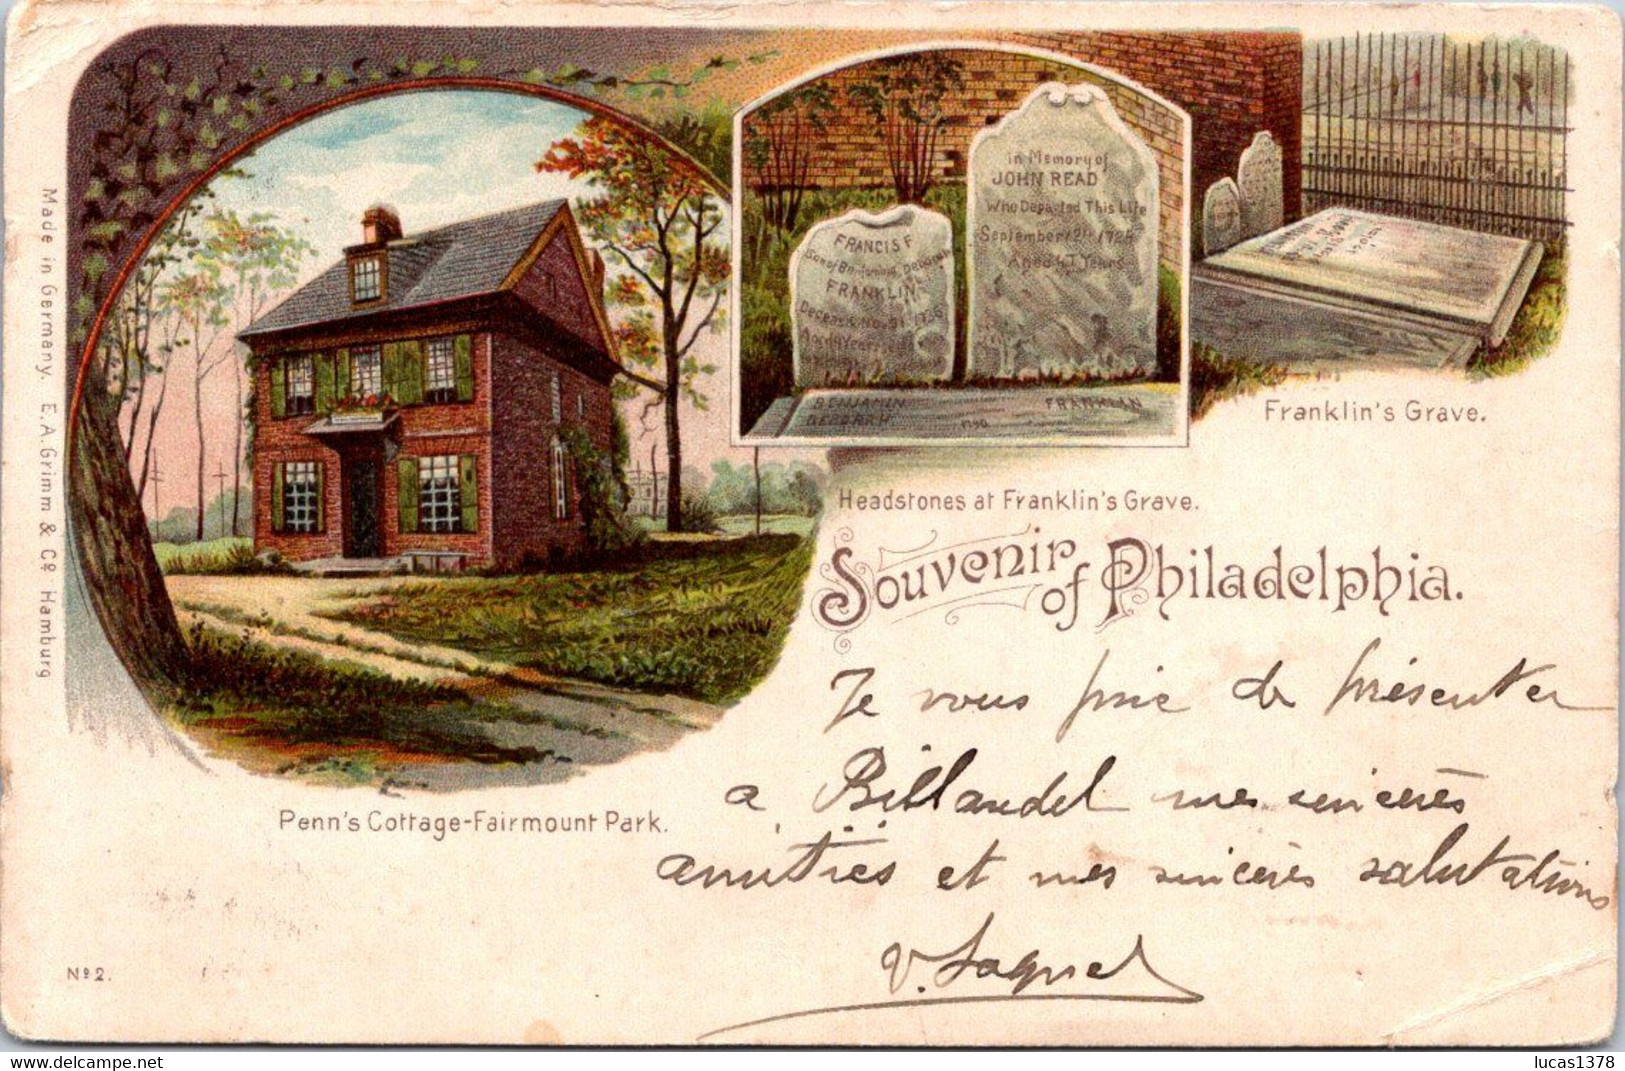 in Memory of
JOHN READ
Who Departed This Life
September 12th 1724
Aged 47 Years
FRANCIS F
Son of Benjamin & Deborah
FRANKLIN
Deceas'd Nov. 21 1736
BENJAMIN
DEBORAH
FRANKLIN
1790
Franklin's Grave.
Headstones at Franklin's Grave.
Souvenir of Philadelphia.
Made in Germany. E.A.Grimm & Cº Hamburg
Penn's Cottage-Fairmount Park.
Je vous prie de présenter
a Billaudel mes sincères
amitiés et mes sincères salutations
V. Laquel
Nº 2.
www.delcampe.net
lucas1378